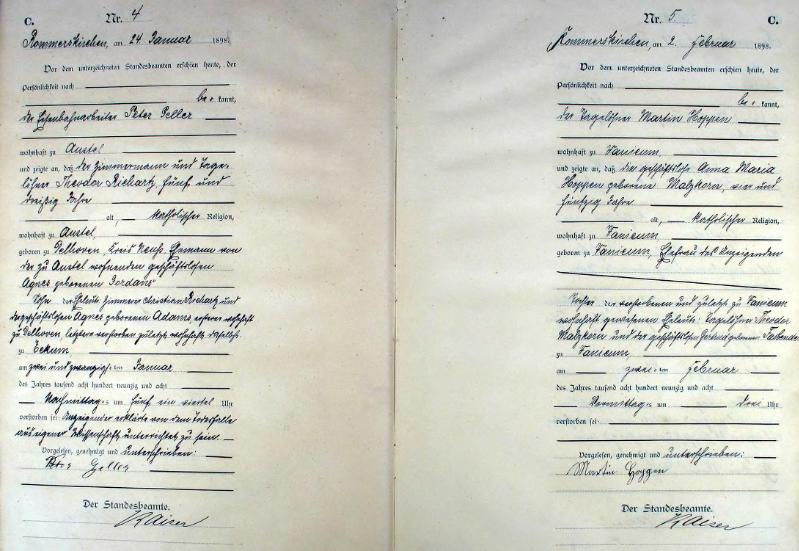 C.
Nr. 4
Rommerskirchen, am 24. Januar 1898.
Vor dem unterzeichneten Standesbeamten erschien heute, der
Persönlichkeit nach
be=kannt,
der Eisenbahnarbeiter Peter Geller
wohnhaft zu Anstel
und zeigte an, daß der Zimmermann und Tage-
löhner Theodor Richartz, fünf und
dreißig Jahre
alt, katholischer Religion,
wohnhaft zu Anstel,
geboren zu Delhoven, Kreis Neuss, Ehemann von
der zu Anstel wohnenden geschäftslosen
Agnes geborenen Jordans
Sohn der Eheleute Zimmerer Christian Richartz und
der geschäftslosen Agnes geborenen Adams, ersterer wohnhaft
zu Delhoven, letztere verstorben zuletzt wohnhaft daselbst
zu Eckum,
am zwei und zwanzigsten Januar
des Jahres tausend acht hundert neunzig und acht
Nachmittags um fünf ein viertel Uhr
verstorben sei: Anzeigender erklärte von dem Todesfalle
aus eigener Wissenschaft unterrichtet zu sein.
Vorgelesen, genehmigt und unterschrieben:
Geller
Der Standesbeamte.
Kaiser
Nr. 5.
C.
Rommerskirchen, am 2. Februar 1898.
Vor dem unterzeichneten Standesbeamten erschien heute, der
Persönlichkeit nach
be=kannt,
der Tagelöhner Martin Hoppen
wohnhaft zu Vanikum,
und zeigte an, daß die geschäftslose Anna Maria
Hoppen geborene Malzkorn, vier und
fünfzig Jahre
alt, katholischer Religion,
wohnhaft zu Vanikum
geboren zu Vanikum, Ehefrau des Anzeigenden
Tochter der verstorbenen und zuletzt zu Vanikum
wohnhaft gewesenen Eheleute: Tagelöhner Theodor
Malzkorn und der geschäftslosen geborenen
zu Vanikum,
am zweiten Februar
des Jahres tausend acht hundert neunzig und acht
Vormittags um drei Uhr
verstorben sei:
Vorgelesen, genehmigt und unterschrieben:
Martin Hoppen
Der Standesbeamte.
Kaiser